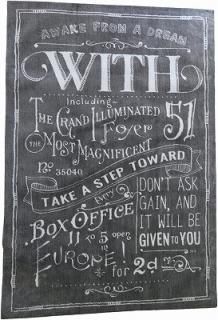 AWAKE FROM A DREAM
WITH
Including
THE GRAND ILLUMINATED
Foyer
51
THE MOST MAGNIFICENT
no. 35040
TAKE A STEP TOWARD
every
BOX OFFICE
11 to 5 open
EUROPE!
for 2d
DON'T ASK
GAIN, AND
IT WILL BE
GIVEN TO YOU